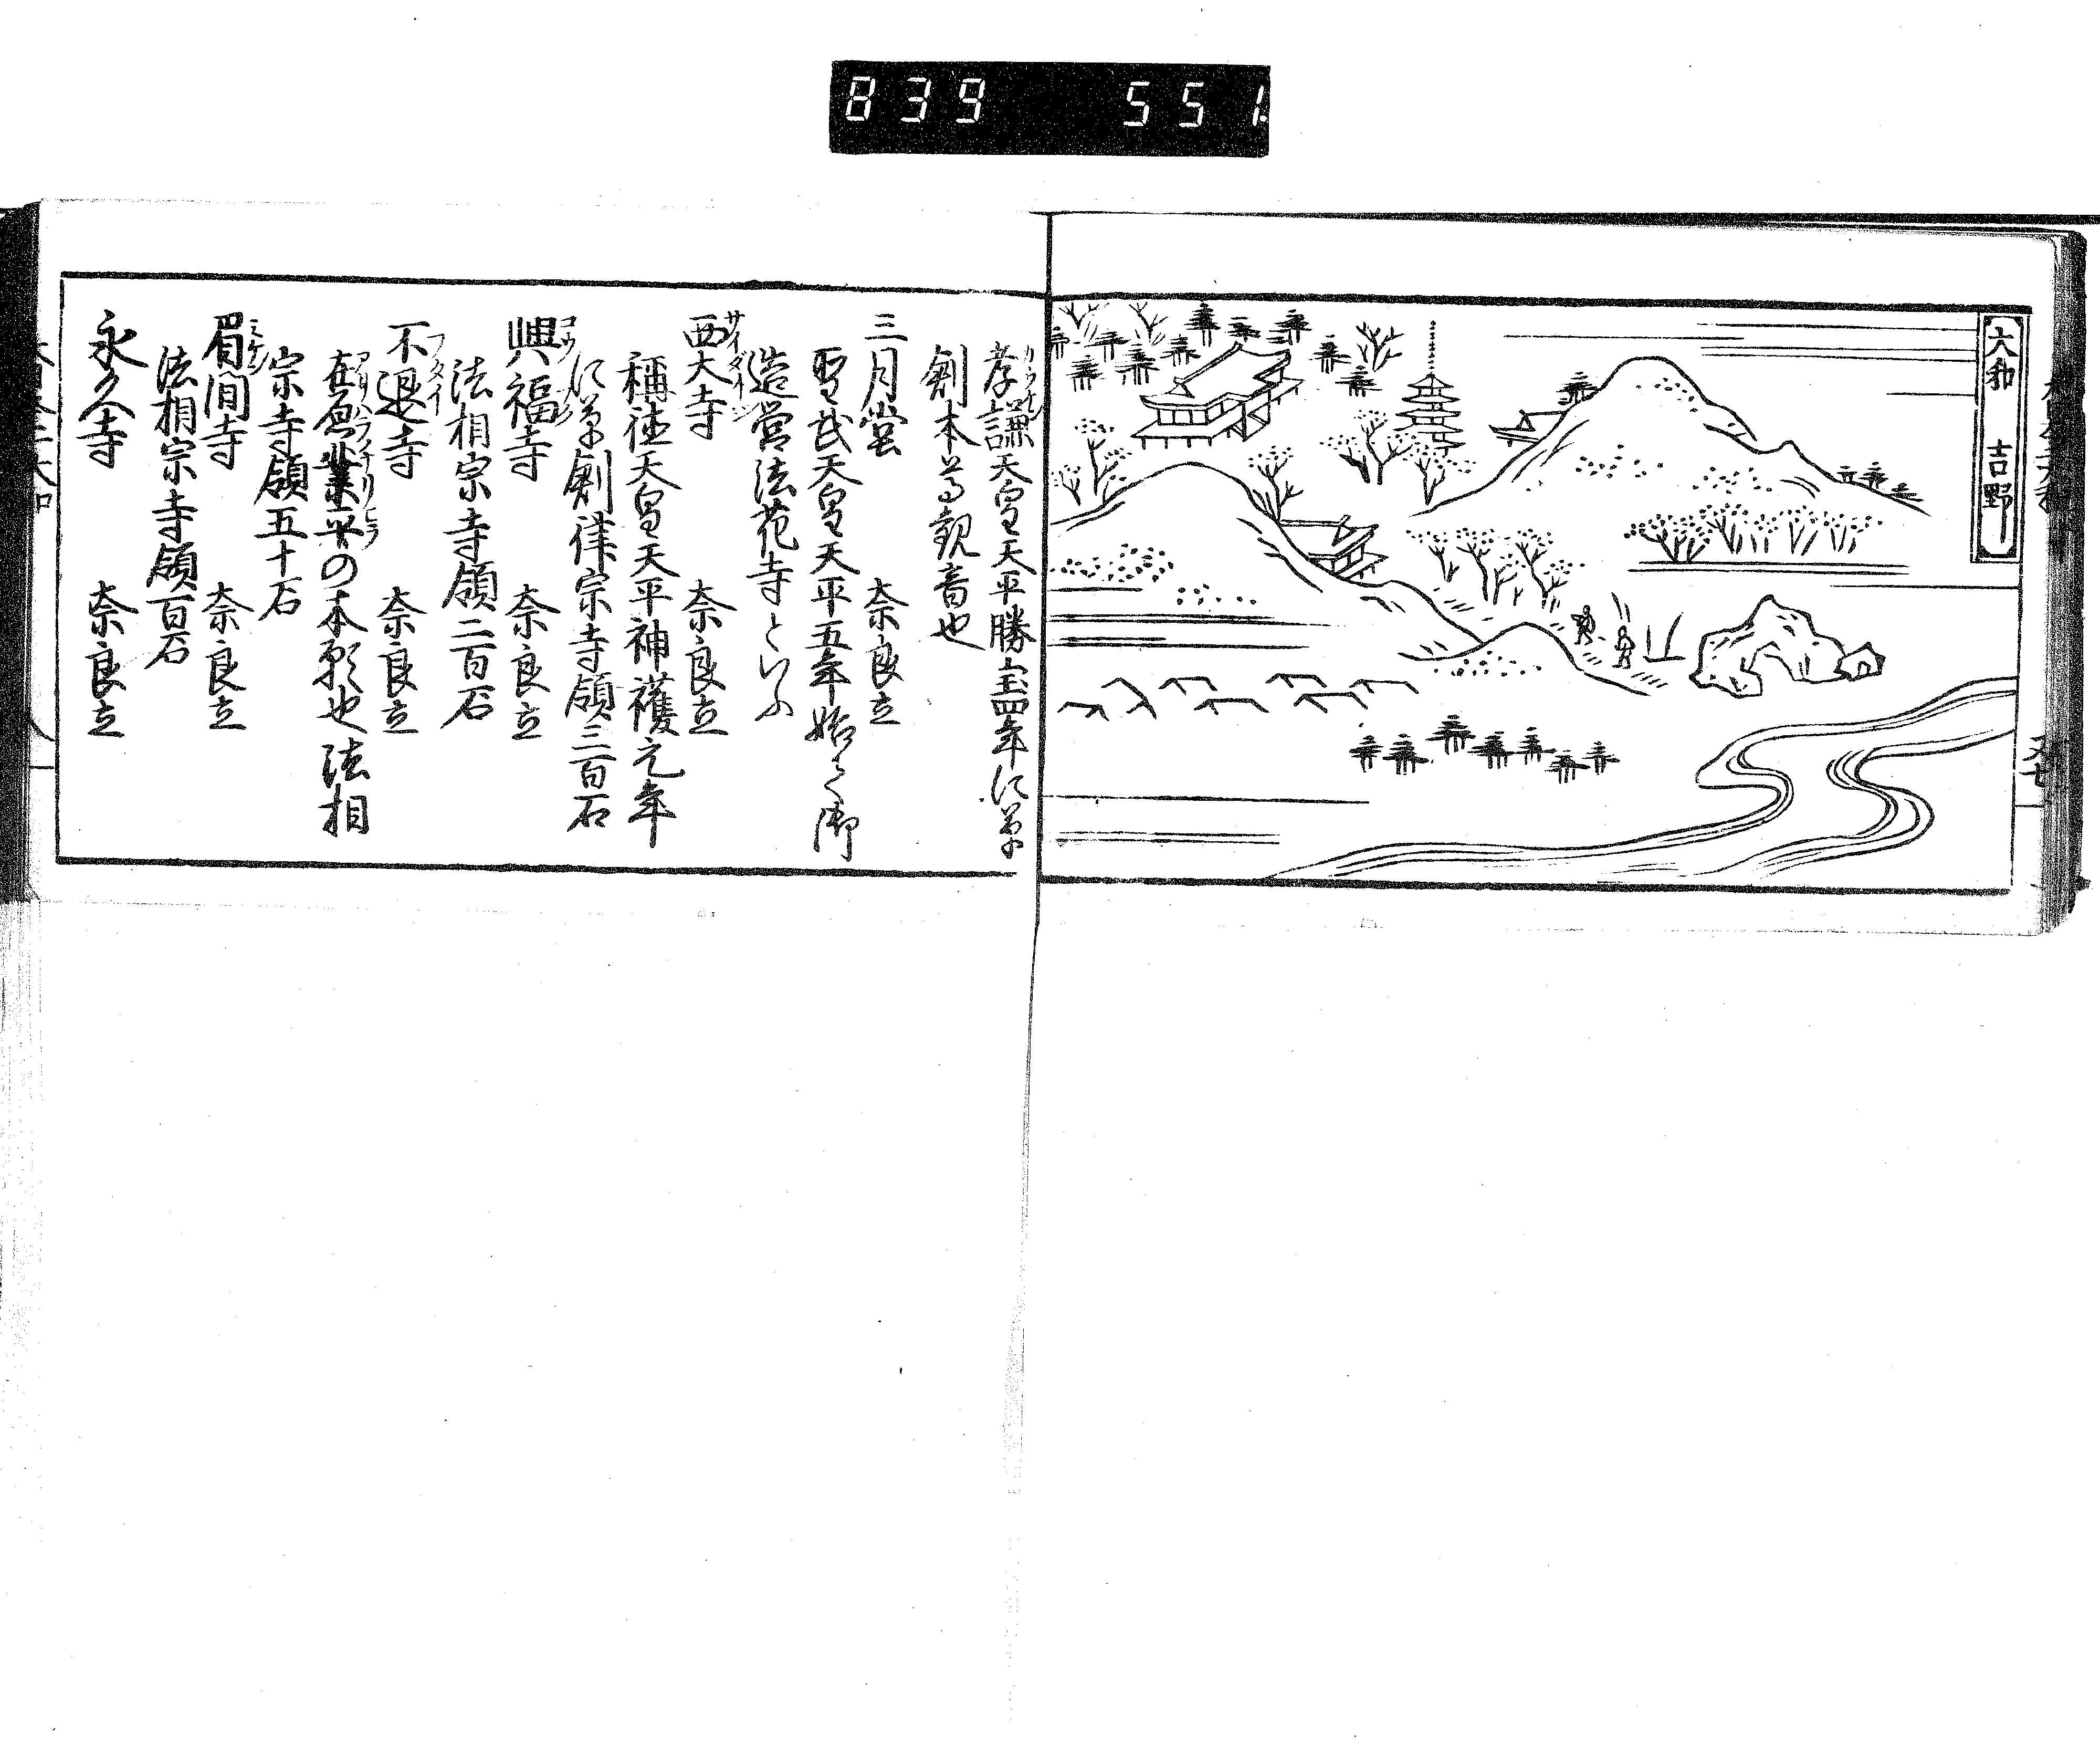 839 551
大和 吉野
又七
孝謙天皇天平勝宝四年に草
創本尊観音也
三月堂 奈良立
聖武天皇天平五年始て御
造営法花寺といふ
西大寺 奈良立
サイダイジ
称徳天皇天平神護元年
に草創律宗寺領三百石
興福寺 奈良立
法相宗寺領二百石
不退寺 奈良立
フタイ
在原業平の本願也法相
アリハラノナリヒラ
宗寺領五十石
眉間寺 奈良立
ミケン
法相宗寺領百石
永久寺 奈良立